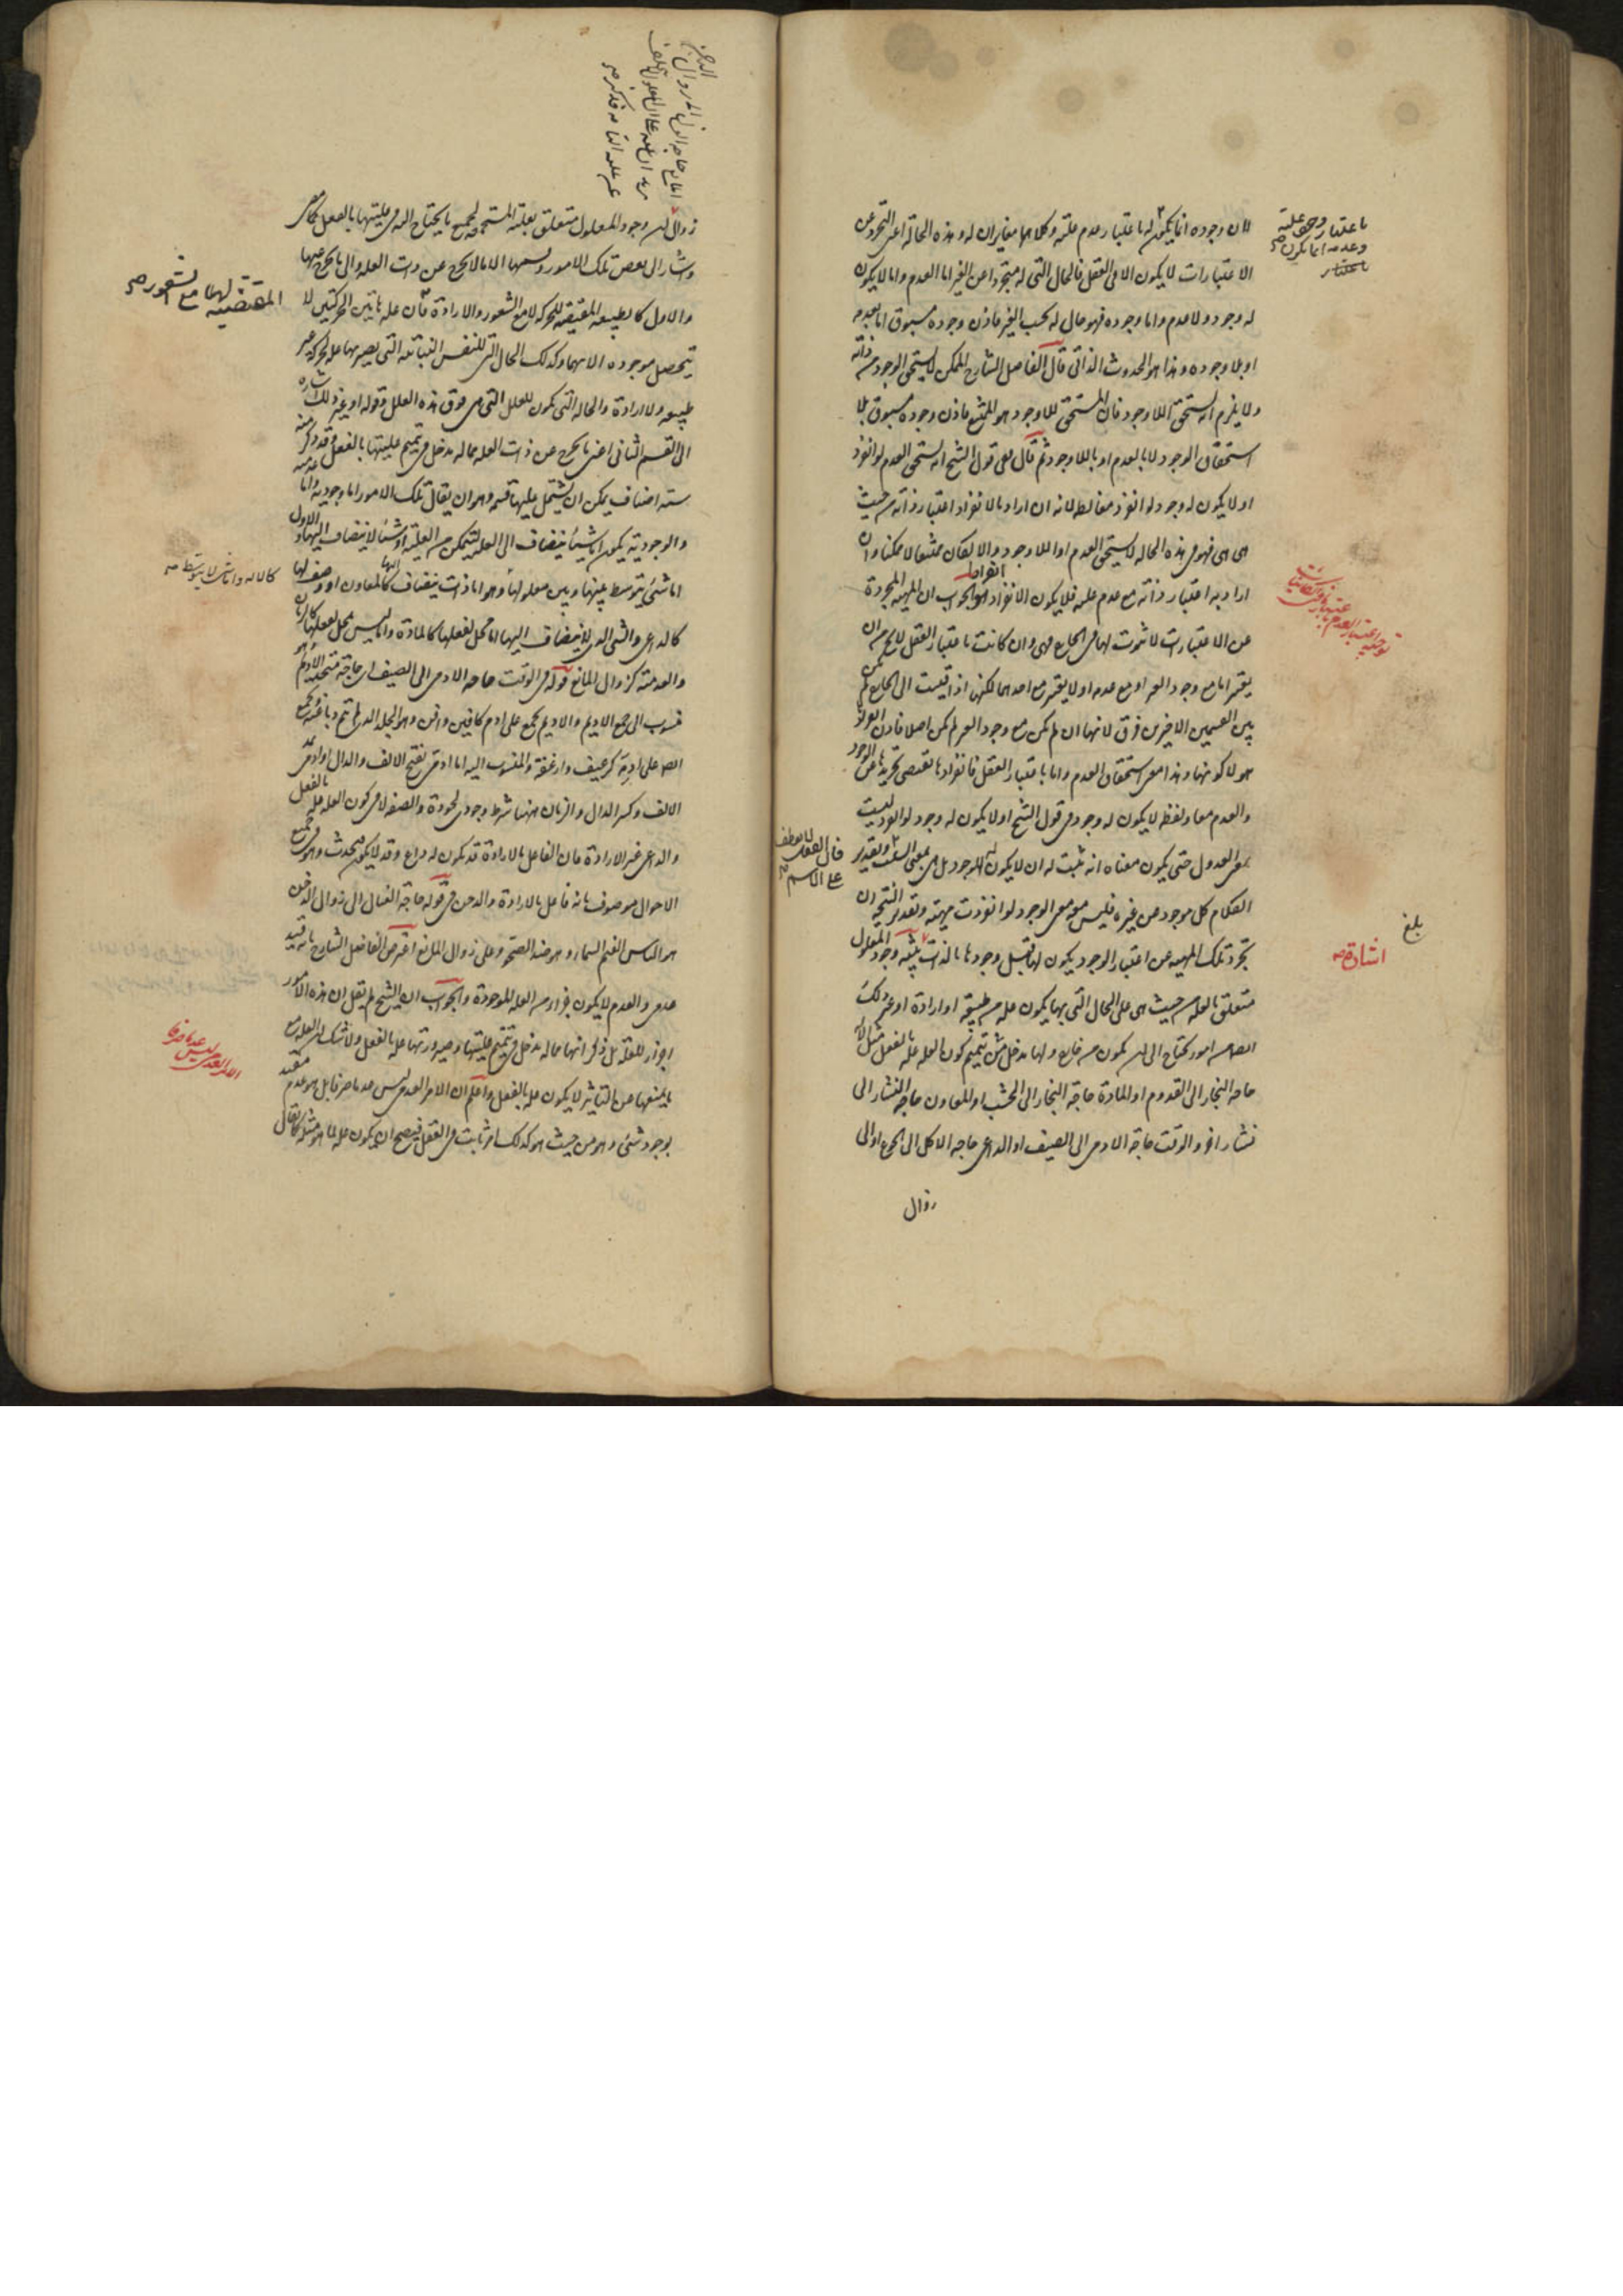 لان وجوده انما يكون له باعتبار عدم علته وكلاهما مغايران له وهذه الحالة اعنى التجرد عن
الاعتبارات لا يكون الا فى العقل فالحال التى له متجردا عن الغير اما العدم واما لا يكون
له وجود ولا عدم واما وجوده فهو حال له بحسب الغير فاذن وجوده مسبوق اما بعدمه
او بلا وجوده وهذا هو الحدوث الذاتى قال الفاضل الشارح الممكن لا يستحق الوجود من ذاته
ولا يلزم انه يستحق اللاوجود فان المستحق للاوجود هو الممتنع فاذن وجوده مسبوق بلا
استحقاق الوجود لا بالعدم او باللاوجود ثم قال معنى قول الشيخ انه يستحق العدم لو انفرد
او لا يكون له وجود لو انفرد مغالطة لانه ان اراد بالانفراد اعتبار ذاته من حيث
هى هى فهو فى هذه الحالة لا يستحق العدم او اللاوجود والا لكان ممتنعا لا ممكنا وان
اراد به اعتبار ذاته مع عدم علته فلا يكون الانفراد انفرادا والجواب ان المهية المجردة
عن الاعتبارات لا ثبوت لها فى الخارج فهى وان كانت باعتبار العقل لا يخلو من ان
يعتبر اما مع وجود الغير او مع عدمه او لا يعتبر مع احدهما لكنها اذا قيست الى الخارج لم يكن
بين القسمين الاخيرين فرق لانها ان لم يكن مع وجود الغير لم يكن اصلا فاذن انفرادها
هو لا كونها وهذا معنى استحقاق العدم واما باعتبار العقل فانفرادها يقتضى تجريدها عن الوجود
والعدم معا ولفظة لا يكون له وجود فى قول الشيخ او لا يكون له وجود لو انفرد ليست
بمعنى العدول حتى يكون معناه انه يثبت له ان لا يكون له الوجود بل هى بمعنى السلب وتقدير
الكلام كل موجود عن غيره فليس هو معه الوجود لو انفردت مهيته وتقدير النتيجة ان
تجرد تلك المهية عن اعتبار الوجود يكون لها قبل وجودها بالذات تنبيه وجود المعلول
متعلق بالعلة من حيث هى على الحال التى بها يكون علة من طبيعة او ارادة او غير ذلك
ايضا من امور يحتاج الى ان يكون من خارج ولها مدخل فى تتميم كون العلة علة بالفعل مثل الآلة
حاجة النجار الى القدوم او المادة حاجة النجار الى الخشب او المعاون حاجة النشار الى
نشار اخر والوقت حاجة الادمى الى الصيف او الداعى حاجة الاكل الى الجوع او الى
زوال
باعتبار وجود علته
وعدمه انما يكون
باعتبار
فان الفعل لا يعطف
على الاسم
بلغ
اشارة
زوال لن وجود المعلول متعلق بعلته المستجمعة لجميع ما يحتاج اليه فى عليتها بالفعل كما مر
واشار الى بعض تلك الامور وقسمها الى ما لا يخرج عن ذات العلة والى ما يخرج عنها
والاول كالطبيعة المقتضية للحركة لا مع الشعور والارادة فان علة هاتين الحركتين لا
يتحصل موجودة الا بهما وكذلك الحال التى للنفس النباتية التى يصير بها علة لحركة غير
طبيعية ولا ارادية والحالة التى يكون للعلل التى هى فوق هذه العلل وقوله او غير ذلك اشارة
الى القسم الثانى اعنى ما يخرج عن ذات العلة مما له مدخل فى تتميم عليتها بالفعل وقد ذكر منه
ستة اصناف يمكن ان يشتمل عليها قسمة وهو ان يقال تلك الامور اما وجودية واما عدمية
والوجودية يكون اما شيئا ينضاف الى العلة ليتمكن من العلية او شيئا لا ينضاف اليها والاول
اما شئ يتوسط بينها وبين معلولها وهو اما ذات ينضاف اليها كالمعاون او وصف لها
كالداعى والشئ الذى لا ينضاف اليها اما محل لفعلها كالمادة واما ليس بمحل لفعلها كالزمان
والعدمية كزوال المانع قوله فى الوقت حاجة الادمى الى الصيف اى حاجة متخذ الاديم وهو
منسوب الى جمع الاديم والاديم يجمع على ادم كافيق وافق وهو الجلد الذى لم يتم دباغته ويجمع
ايضا على ادمة كرغيف وارغفة والمنسوب اليه اما ادمى بفتح الالف والدال او ادمى بمد
الالف وكسر الدال والزمان ههنا شرط وجودى لجودة الصنعة لا فى كون العلة علة بالفعل
والداعى غير الارادة فان الفاعل بالارادة قد يكون له داع وقد لا يكون يحدث وهو فى جميع
الاحوال موصوف بانه فاعل بالارادة والدجن فى قوله حاجة الغسال الى زوال الدجن
هو الباس الغيم السماء وهو ضد الصحو وعلى زوال المانع اعترض الفاضل الشارح بانه قيد
عدمى والعدم لا يكون جزءا من العلة الموجودة والجواب ان الشيخ لم يقل ان هذه الامور
اجزاء للعلة بل ذكر انها مما له مدخل فى تتميم عليتها وصيرورتها علة بالفعل ولا شك ان العلة مع
ما يمنعها من التاثير لا يكون علة بالفعل واعلم ان الامر العدمى ليس عدما صرفا بل هو عدم مقيد
بوجود شئ وهو من حيث هو كذلك امر ثابت فى العقل فيصح ان يكون علة لما هو مثله كما يقال
المقتضية لهما مع الشعور
كالالة واما شئ لا يتوسط
الامر العدمى ليس عدما صرفا